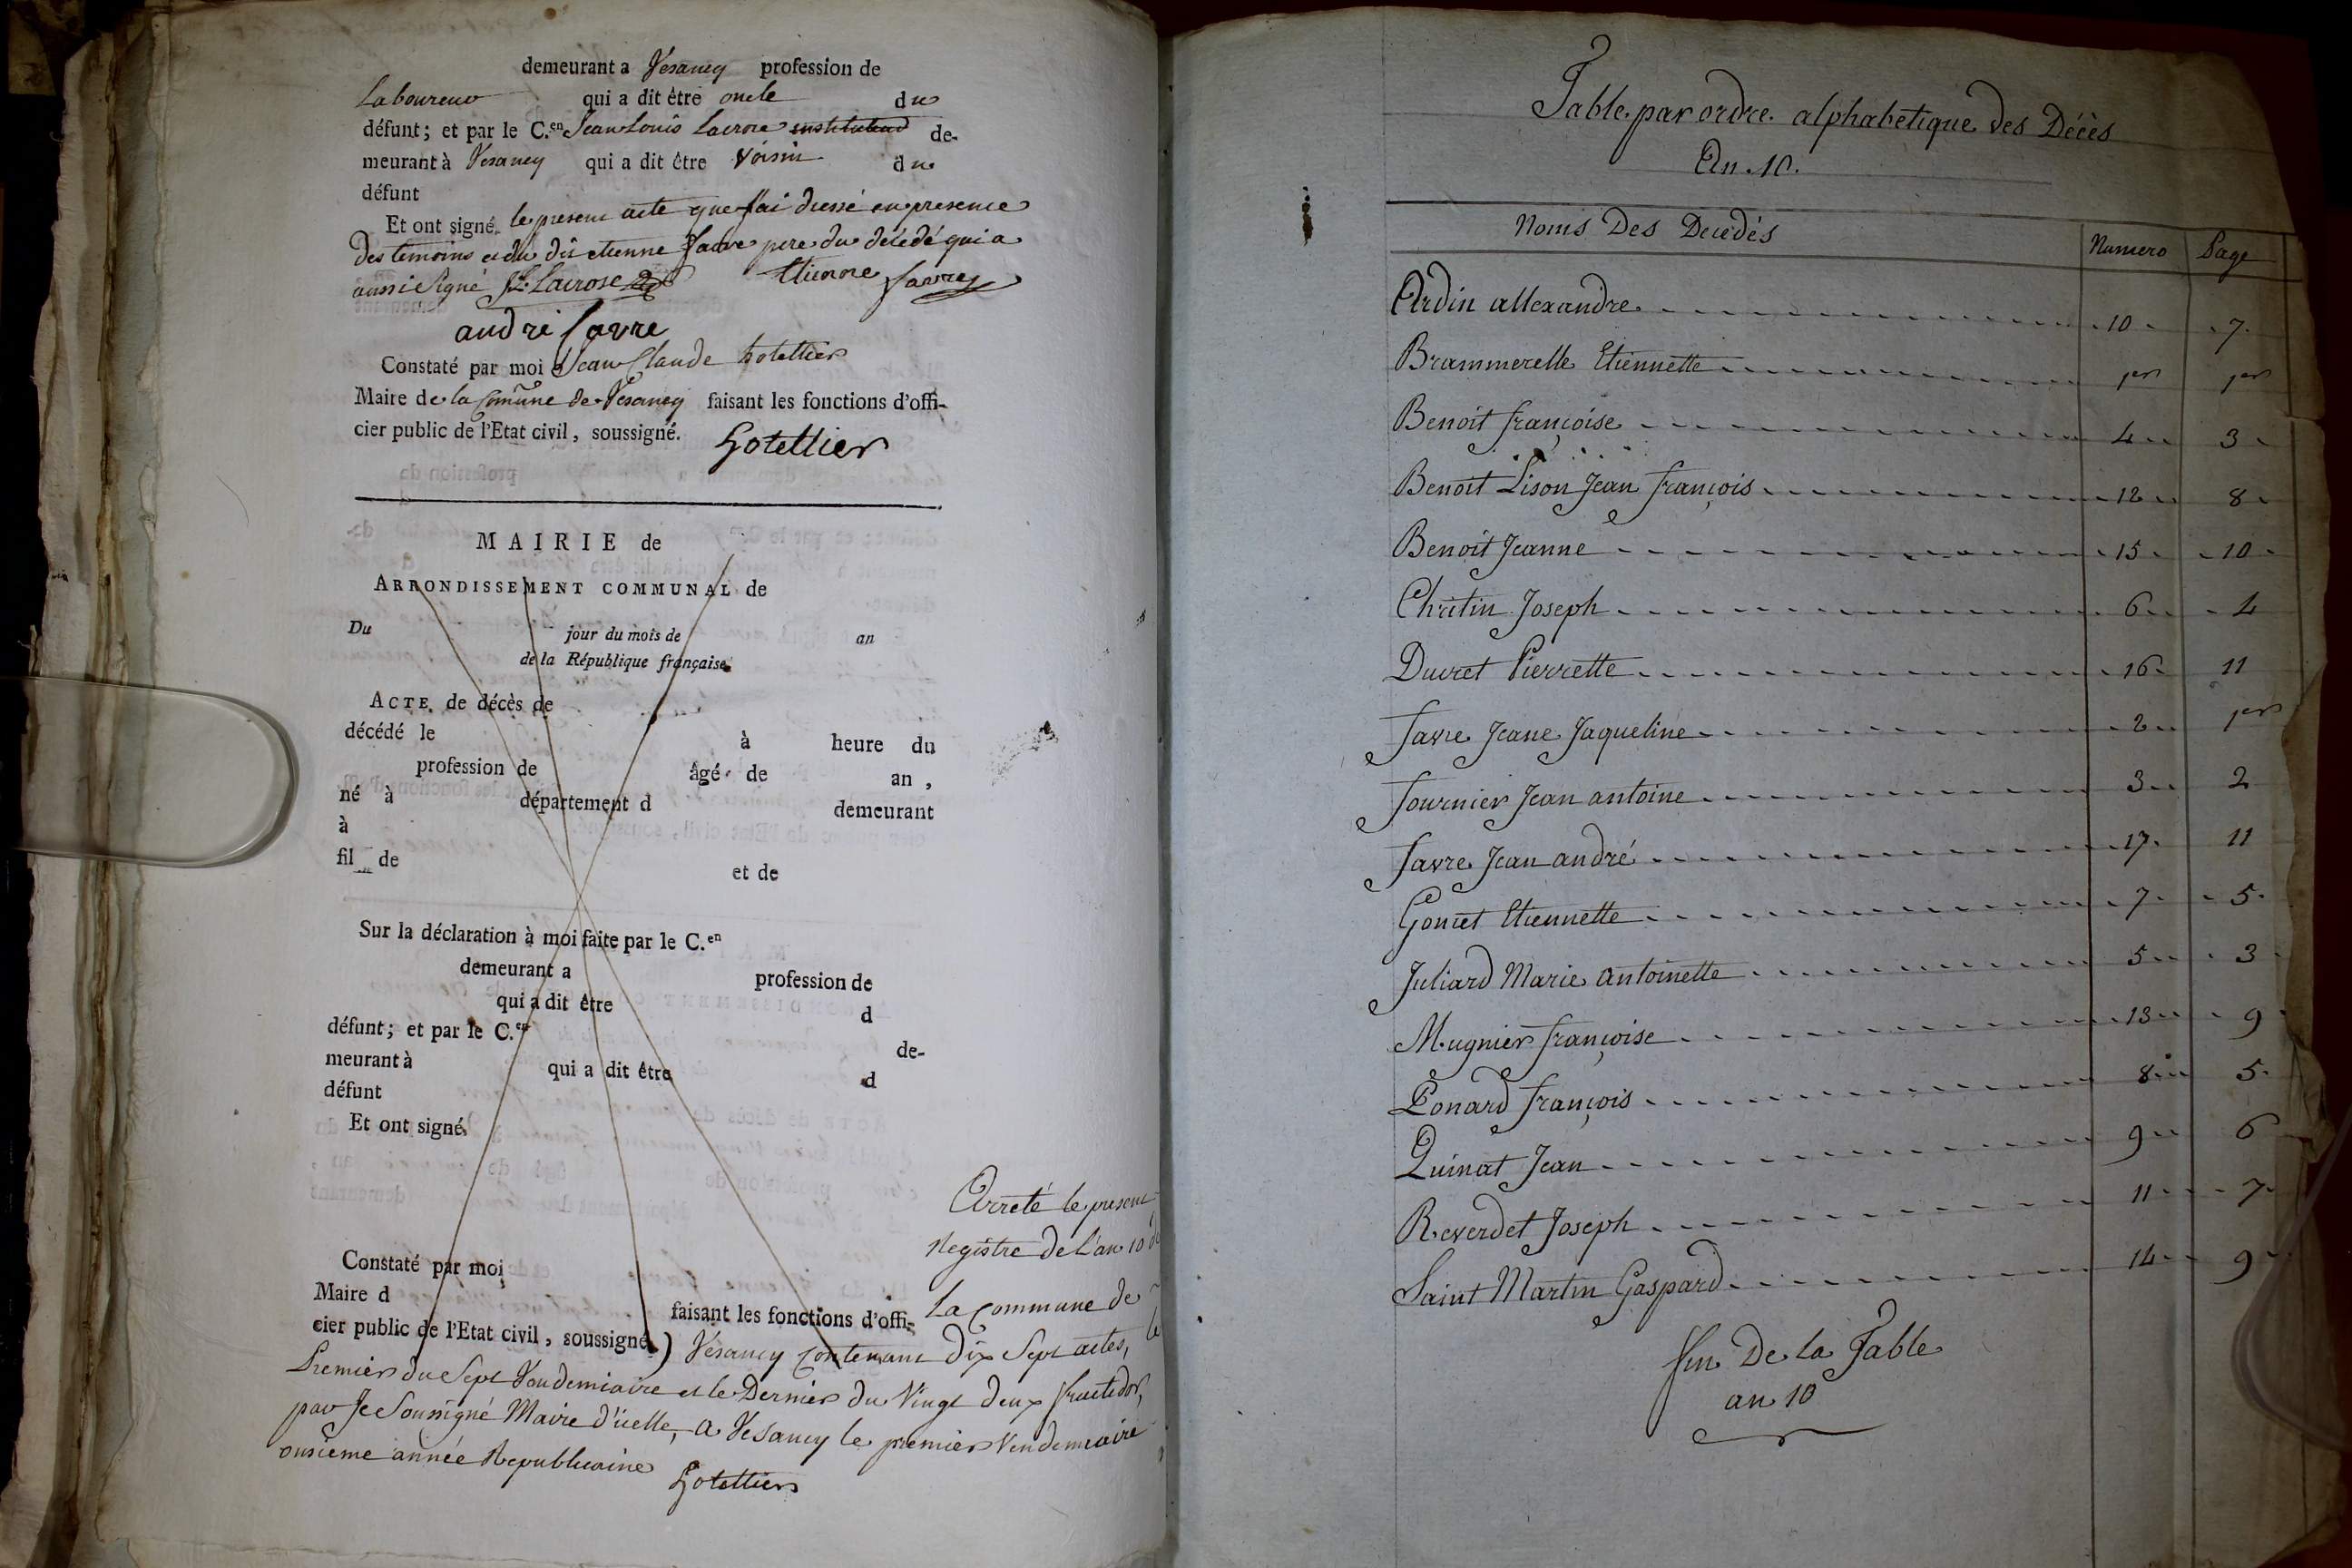 demeurant a Vesancy profession de
Laboureur qui a dit être oncle du
défunt; et par le C.en Jean Louis Lacroix instituteur de-
meurant à Vesancy qui a dit être voisin du
défunt
Et ont signé. le present acte que j'ai dressé en presence
des temoins et du dit etienne favre pere du décédé qui a
aussi signé J.L. Lacrose Etienne favre
andré favre
Constaté par moi Jean Claude hotellier
Maire de la Comune de Vesancy faisant les fonctions d'offi-
cier public de l'Etat civil, soussigné. hotellier
MAIRIE de
ARRONDISSEMENT COMMUNAL de
Du jour du mois de an
de la République française.
ACTE de décès de
décédé le à heure du
profession de âgé de an,
né à département d demeurant
à
fil de et de
Sur la déclaration à moi faite par le C.en
demeurant a profession de
qui a dit être d
défunt; et par le C.en de-
meurant à qui a dit être d
défunt
Et ont signé.
Constaté par moi
Maire d faisant les fonctions d'offi-
cier public de l'Etat civil, soussigné.
Arreté le present
Registre de l'an 10 de
La Commune de
Vesancy contenant dix sept actes, le
Premier du Sept Vendemiaire et le Dernier du Vingt deux fructidor,
par Je Soussigné Maire d'icelle, a Vesancy le premier Vendemiaire
onsieme année Republicaine hotellier
Table par ordre alphabetique des Décès
An .10.
Noms Des Decedés Numero Page
Ardin allexandre 10 7
Brammerelle Etiennette 1er 1er
Benoit françoise 4 3
Benoit Lison Jean françois 12 8
Benoit Jeanne 15 10
Chritin Joseph 6 4
Duvret Pierrette 16 11
favre Jeane Jaqueline 2 1er
fournier Jean antoine 3 2
favre Jean andré 17 11
Goncet Etiennette 7 5
Juliard Marie antoinette 5 3
Mugnier françoise 13 9
Ponard françois 8 5
Quinat Jean 9 6
Reverdet Joseph 11 7
Saint Martin Gaspard 14 9
fin De la Table
an 10